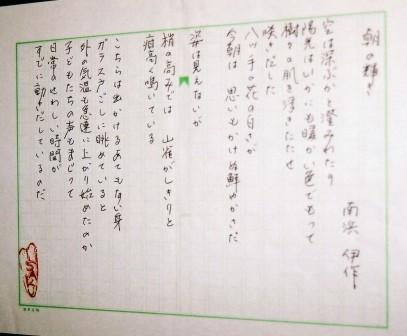 朝の輝き
南浜 伊作
空は深ぶかと澄みわたり
陽光はいかにも暖かい色でもって
樹々の肌を浮きたたせ
咲きだした
八ツ手の花の白さが
今朝は 思いもかけぬ鮮やかさだ
姿は見えないが
梢の高みでは 山雀がしきりと
疳高く鳴いている
こちらは出かけるあてもない身
ガラスごしに眺めていると
外の気温も急速に上がり始めたのか
子どもたちの声もまじって
日常のせわしい時間が
すでに動きだしているのだ